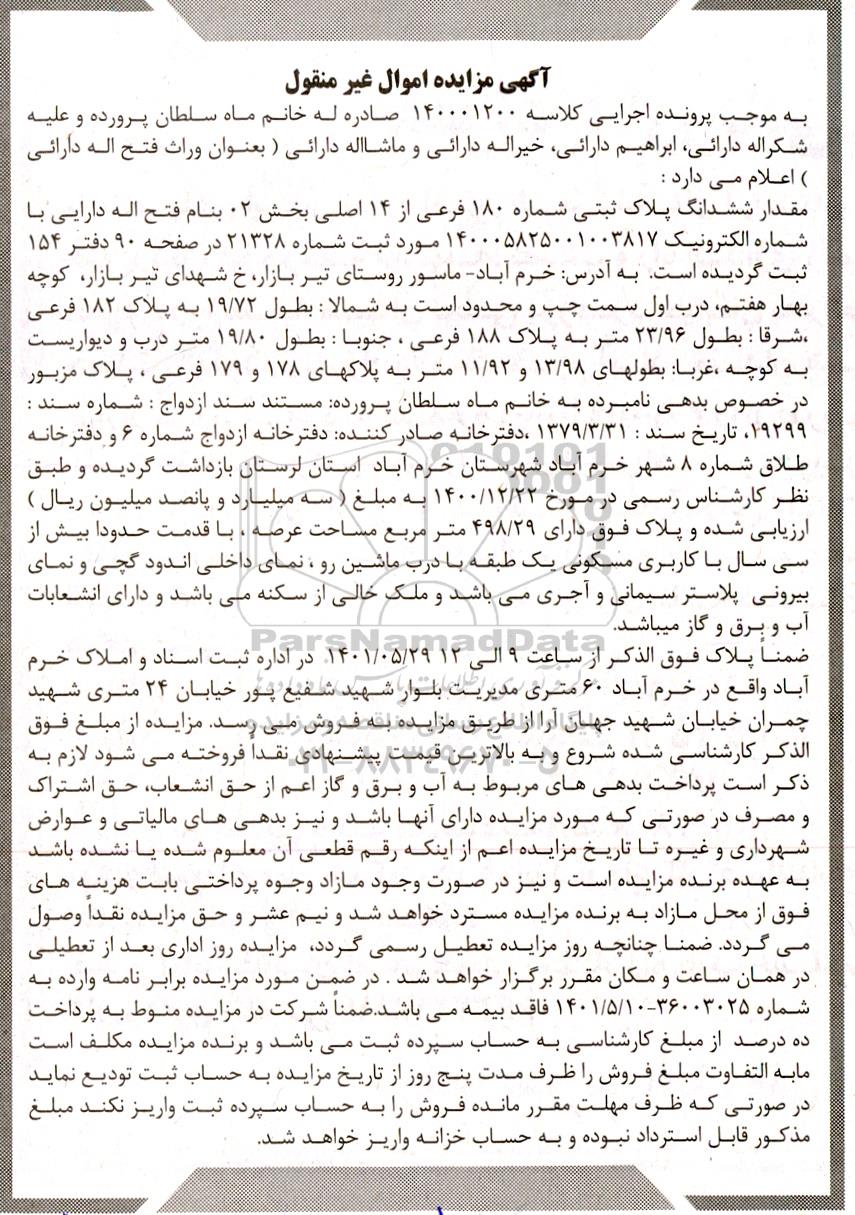 آگهی مزایده اموال غیر منقول
به موجب پرونده اجرایی کلاسه ۱۴۰۰۰۱۲۰۰ صادره له خانم ماه سلطان پرورده و علیه
شکراله دارائی، ابراهیم دارائی، خیراله دارائی و ماشااله دارائی ( بعنوان وراث فتح اله دارائی
) اعلام می دارد :
مقدار ششدانگ پلاک ثبتی شماره ۱۸۰ فرعی از ۱۴ اصلی بخش ۰۲ بنام فتح اله دارایی با
شماره الکترونیک ۱۴۰۰۰۵۸۲۵۰۰۱۰۰۳۸۱۷ مورد ثبت شماره ۲۱۳۲۸ در صفحه ۹۰ دفتر ۱۵۴
ثبت گردیده است. به آدرس: خرم آباد- ماسور روستای تیر بازار، خ شهدای تیر بازار، کوچه
بهار هفتم، درب اول سمت چپ و محدود است به شمالا : بطول ۱۹/۷۲ به پلاک ۱۸۲ فرعی
،شرقا : بطول ۲۳/۹۶ متر به پلاک ۱۸۸ فرعی ، جنوبا : بطول ۱۹/۸۰ متر درب و دیواریست
به کوچه ،غربا: بطولهای ۱۳/۹۸ و ۱۱/۹۲ متر به پلاکهای ۱۷۸ و ۱۷۹ فرعی ، پلاک مزبور
در خصوص بدهی نامبرده به خانم ماه سلطان پرورده: مستند سند ازدواج : شماره سند :
۱۹۲۹۹، تاریخ سند : ۱۳۷۹/۳/۳۱ ،دفترخانه صادر کننده: دفترخانه ازدواج شماره ۶ و دفترخانه
طلاق شماره ۸ شهر خرم آباد شهرستان خرم آباد استان لرستان بازداشت گردیده و طبق
نظر کارشناس رسمی در مورخ ۱۴۰۰/۱۲/۲۲ به مبلغ ( سه میلیارد و پانصد میلیون ریال )
ارزیابی شده و پلاک فوق دارای ۴۹۸/۲۹ متر مربع مساحت عرصه ، با قدمت حدودا بیش از
سی سال با کاربری مسکونی یک طبقه با درب ماشین رو ، نمای داخلی اندود گچی و نمای
بیرونی پلاستر سیمانی و آجری می باشد و ملک خالی از سکنه می باشد و دارای انشعابات
آب و برق و گاز میباشد.
ParsNamadData
ضمناً پلاک فوق الذکر از ساعت ۹ الی ۱۲ ۱۴۰۱/۰۵/۲۹ در اداره ثبت اسناد و املاک خرم
آباد واقع در خرم آباد ۶۰ متری مدیریت بلوار شهید شفیع پور خیابان ۲۴ متری شهید
چمران خیابان شهید جهان آرا از طریق مزایده به فروش می رسد. مزایده از مبلغ فوق
الذکر کارشناسی شده شروع و به بالاترین قیمت پیشنهادی نقداً فروخته می شود لازم به
۰۲۱-۸۸۳۴۹۶۷۰-۵
ذکر است پرداخت بدهی های مربوط به آب و برق و گاز اعم از حق انشعاب، حق اشتراک
و مصرف در صورتی که مورد مزایده دارای آنها باشد و نیز بدهی های مالیاتی و عوارض
شهرداری و غیره تا تاریخ مزایده اعم از اینکه رقم قطعی آن معلوم شده یا نشده باشد
به عهده برنده مزایده است و نیز در صورت وجود مازاد وجوه پرداختی بابت هزینه های
فوق از محل مازاد به برنده مزایده مسترد خواهد شد و نیم عشر و حق مزایده نقداً وصول
می گردد. ضمنا چنانچه روز مزایده تعطیل رسمی گردد، مزایده روز اداری بعد از تعطیلی
در همان ساعت و مکان مقرر برگزار خواهد شد . در ضمن مورد مزایده برابر نامه وارده به
شماره ۳۶۰۰۳۰۲۵-۱۴۰۱/۵/۱۰ فاقد بیمه می باشد.ضمناً شرکت در مزایده منوط به پرداخت
ده درصد از مبلغ کارشناسی به حساب سپرده ثبت می باشد و برنده مزایده مکلف است
مابه التفاوت مبلغ فروش را ظرف مدت پنج روز از تاریخ مزایده به حساب ثبت تودیع نماید
در صورتی که ظرف مهلت مقرر مانده فروش را به حساب سپرده ثبت واریز نکند مبلغ
مذکور قابل استرداد نبوده و به حساب خزانه واریز خواهد شد.